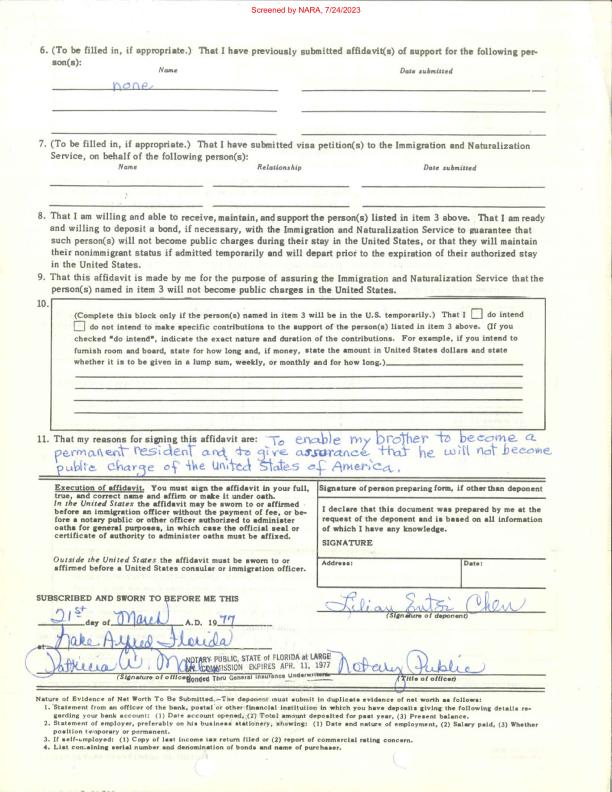 Screened by NARA, 7/24/2023
6. (To be filled in, if appropriate.) That I have previously submitted affidavit(s) of support for the following per-
son(s):
Name Date submitted
none
7. (To be filled in, if appropriate.) That I have submitted visa petition(s) to the Immigration and Naturalization
Service, on behalf of the following person(s):
Name Relationship Date submitted
8. That I am willing and able to receive, maintain, and support the person(s) listed in item 3 above. That I am ready
and willing to deposit a bond, if necessary, with the Immigration and Naturalization Service to guarantee that
such person(s) will not become public charges during their stay in the United States, or that they will maintain
their nonimmigrant status if admitted temporarily and will depart prior to the expiration of their authorized stay
in the United States.
9. That this affidavit is made by me for the purpose of assuring the Immigration and Naturalization Service that the
person(s) named in item 3 will not become public charges in the United States.
10.
(Complete this block only if the person(s) named in item 3 will be in the U.S. temporarily.) That I do intend
do not intend to make specific contributions to the support of the person(s) listed in item 3 above. (If you
checked "do intend", indicate the exact nature and duration of the contributions. For example, if you intend to
furnish room and board, state for how long and, if money, state the amount in United States dollars and state
whether it is to be given in a lump sum, weekly, or monthly and for how long.)
11. That my reasons for signing this affidavit are: To enable my brother to become a
permanent resident and to give assurance that he will not become
public charge of the United States of America.
Execution of affidavit. You must sign the affidavit in your full,
true, and correct name and affirm or make it under oath.
In the United States the affidavit may be sworn to or affirmed
before an immigration officer without the payment of fee, or be-
fore a notary public or other officer authorized to administer
oaths for general purposes, in which case the official seal or
certificate of authority to administer oaths must be affixed.
Outside the United States the affidavit must be sworn to or
affirmed before a United States consular or immigration officer.
Signature of person preparing form, if other than deponent
I declare that this document was prepared by me at the
request of the deponent and is based on all information
of which I have any knowledge.
SIGNATURE
Address: Date:
SUBSCRIBED AND SWORN TO BEFORE ME THIS
21st day of March A.D. 1977
Lilian Chen
(Signature of deponent)
at Lake Alfred Florida
Patricia W.
NOTARY PUBLIC, STATE OF FLORIDA at LARGE
MY COMMISSION EXPIRES APR. 11, 1977
Bonded Thru General Insurance Underwriters
Notary Public
(Signature of officer) (Title of officer)
Nature of Evidence of Net Worth To Be Submitted.—The deponent must submit in duplicate evidence of net worth as follows:
1. Statement from an officer of the bank, postal or other financial institution in which you have deposits giving the following details re-
garding your bank account: (1) Date account opened, (2) Total amount deposited for past year, (3) Present balance.
2. Statement of employer, preferably on his business stationery, showing: (1) Date and nature of employment, (2) Salary paid, (3) Whether
position temporary or permanent.
3. If self-employed: (1) Copy of last income tax return filed or (2) report of commercial rating concern.
4. List containing serial number and denomination of bonds and name of purchaser.